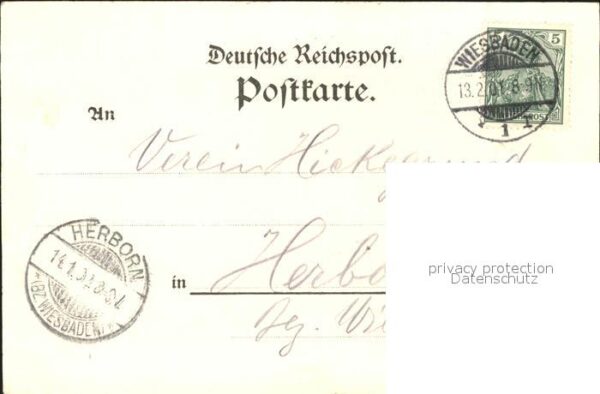 Deutsche Reichspost.
Postkarte.
WIESBADEN
13.2.01. 8-9N
1
5
An
Verein
HERBORN
(BZ WIESBADEN)
in Herbo
Bez. Wie
privacy protection
Datenschutz